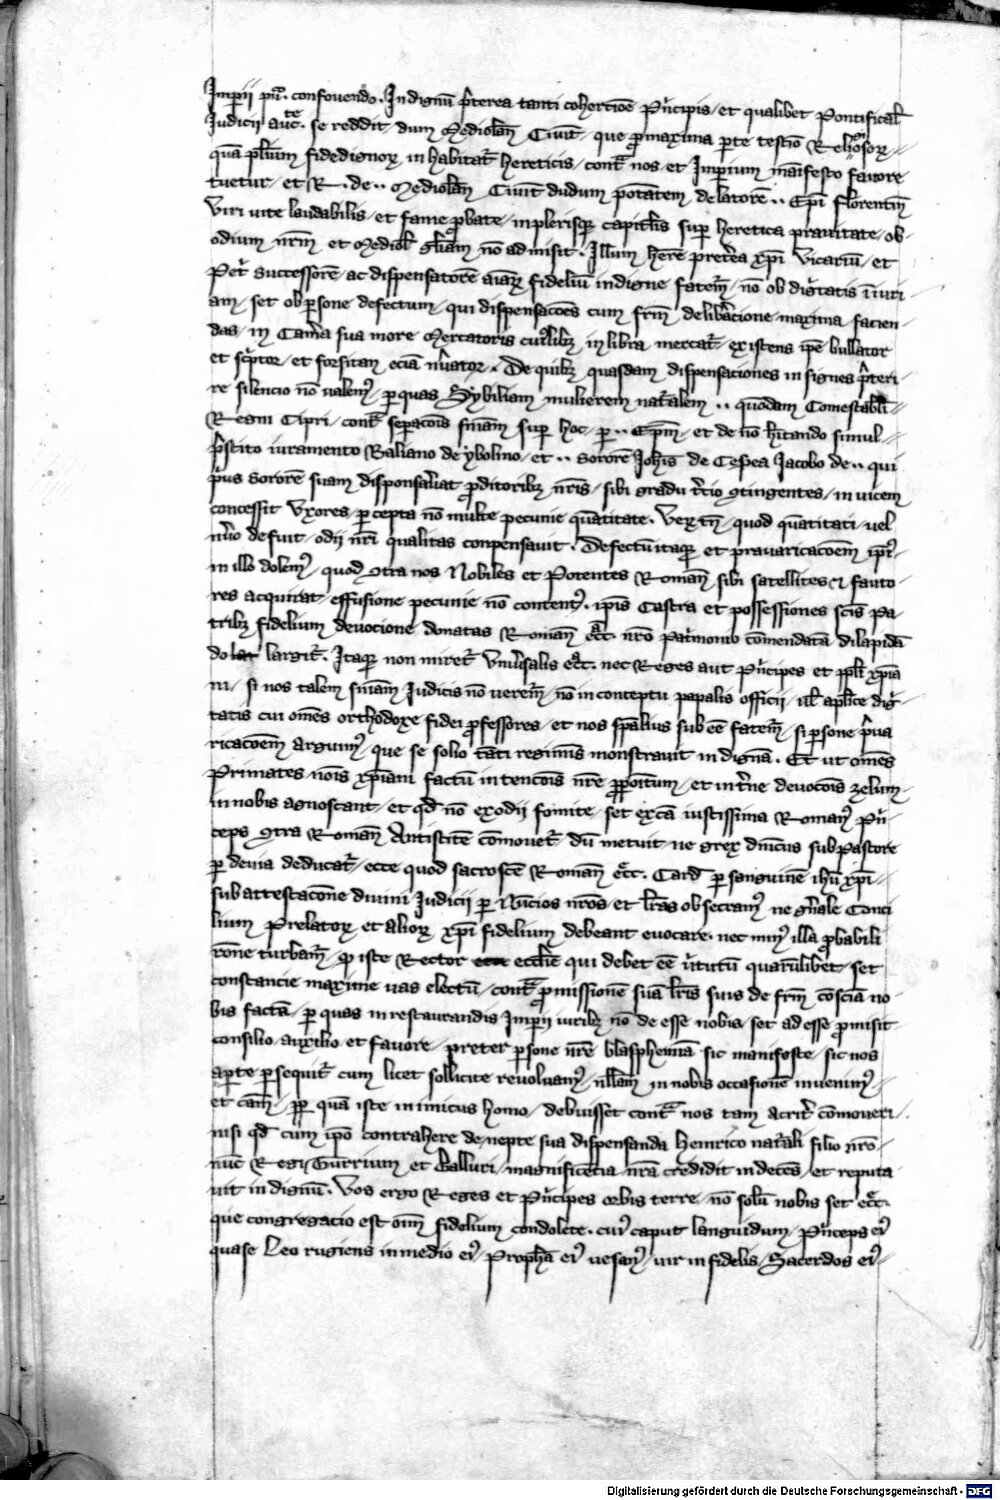 Imp̄ii pñ. confovendo. Indignū p̄terea tanti cohercioē Pñcipis et qualibet Pontifical̄
Judicii auctē. se reddit dum Mediolañ Civit̄ que p maxima p̄te testio Religiosoꝝ
quā pl̄ium fidedignoꝝ in habitat̄ hereticis cont̄ nos et Imp̄ium mãifesto favore
tuetur et R. de .. Mediolañ Civit̄ dudum potãtem delatorē .. Ep̄i florentiñ
viri vite laudabilis et fame p̄bate in plerisqȝ capitl̄is sup̄ heretica pravitate ob
odium nr̄m et Mediol̄ gl̄iam nō admisit. Illum herē pret̄ea xp̄i vicariū et
Pet̄ successorē ac dispensatorē aīaꝝ fideliū indigne fatem̄ nō ob dig̃tatis iniuri
am set ob p̄sone defectum qui dispensacoēs cum fr̄m delib̄acione maxima facien
das in Cam̄a sua more mercatoris in libra mercat̄ existens ip̄e bullator
et sc̄ptor et forsitan eciā nūator. De quibȝ quasdam dispensaciones insignes p̄teri
re silencio nō valemȝ p̄ quas Sybiliam mulierem nat̄alem .. quōdam Comestabl̄i
Regni Cipri cont̄ sep̄acoīs snīam sup̄ hoc p̄ .. Ep̄m et de nō h̄itando simul
p̄stito iuramento Baliano de ybolino et .. sororē Joh̄is de Cesrea Jacobo de .. qui
p̄us sororē suam disponsav̄at p̄ditoribȝ nr̄is sibi gradu t̄cio ꝯtingentes in vicem
concessit uxores p̄cepta nō multe pecunie quātitate. Veꝝ tñ quod quātitati vel
nūo defuit odii nr̄i qualitas conpensavit. Defectū itaqȝ et pravaricacoēm ip̄iȝ
in illo dolemȝ quod ꝯtra nos Nobiles et Potentes Romañ sibi satellites et fauto
res acquirat effusione pecunie nō contentȝ. ip̄is Castra et possessiones sc̄is Pa
tribȝ fidelium devocione donatas Romañ ecc̄. nr̄o pat̄imonio cōmendata dilapidā
do largit̄. Itaqȝ non miret̄ univ̄salis ecc̄. nec Reges aut Pñcipes et ppl̄i xp̄ia
ni si nos talem snīam Judicis nō verem̄ nō in conteptu papalis officii ul̄ apl̄ice dig̃
tatis cui omēs orthodoxe fidei p̄fessores et nos sp̄alius sub eē fatem̄ si p̄sone p̄va
ricacoēm arguimȝ que se solio tāti regiminis monstravit indignā. Et ut omēs
Primates nōis xp̄iani factū intencoīs nr̄e p̄poītum et int̄ne devocoīs zelum
in nobis agnoscant et qd̄ nō ex odii fomite set ex cā iustissima Romanȝ Pñ
ceps ꝯtra Romañ Antistitē cōmovet̄ dū metuit ne grex dn̄icus sub pastore
p̄ devia deducat̄ ecce quod sacrosc̄e Romañ ecc̄. Card p̄ sanguinē ihū xp̄i
sub attestacōne divini Judicii p̄ Nūcios nr̄os et l̄ras obsecramȝ ne gn̄ale Conci
lium Prelatoꝝ et alioꝝ xp̄i fidelium debeant evocare. nec nimȝ illa p̄babili
rōne turbam̄ qȝ iste Rector eccl̄ie qui debet eē v̄tutū quarūlibet set
constancie maxime vas electū cont̄ p̄missionē suā l̄ris suis de fr̄m cōsciā no
bis factā p̄ quas in restaurandis Imp̄ii iuribȝ nō de esse nobis set ad esse p̄misit
consilio auxilio et favore preter p̄sone nr̄e blasphemiā sic manifeste sic nos
ap̄te p̄sequit̄ cum licet sollicite revolvamȝ nll̄am in nobis occasionē invenimȝ
et cam̄ pp̄ quā iste inimicus homo debuisset cont̄ nos tam acrit̄ cōmoveri.
nisi qd̄ cum ip̄o contrahere de nepte sua dispensanda Henrico nat̄ali filio nr̄o
nūc Regi Turrium et Galluri magnificētia nr̄a credidit indecēs et reputa
vit indignū. Vos ergo Reges et Pñcipes orbis terre nō solū nobis set ecc̄.
que congregacio est oīm fidelium condolete. cuiȝ caput languidum Pñceps eiȝ
quase Leo rugiens in medio eiȝ Proph̄a eiȝ vesanȝ vir infidelis Sacerdos eiȝ
Digitalisierung gefördert durch die Deutsche Forschungsgemeinschaft - DFG